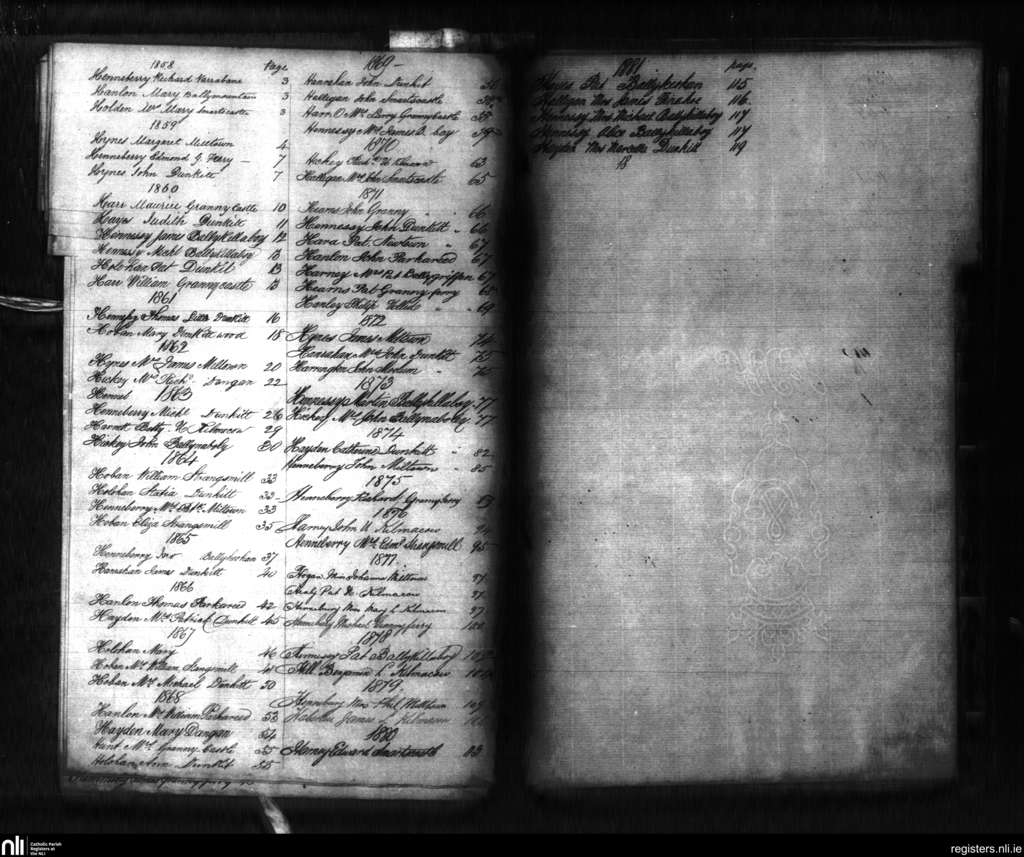 1858 Page
Henneberry Richard Narrabane 3
Hanlon Mary Ballymountain 3
Holden Mrs Mary Smartscastle 3
1859
Hynes Margaret Miltown 4
Henneberry Edmond G. Ferry 7
Hynes John Dunkitt 7
1860
Harr Maurice Granny Castle 10
Hayes Judith Dunkitt 11
Hennessy James Ballykillaboy 12
Hennessy Michl Ballykillaboy 13
Holohan Pat Dunkit 13
Harr William Grannycastle 13
1861
Thomas Dunkitt 16
Hoban Mary Dunkitt wood 18
1862
Hynes Mrs James Milltown 20
Hickey Mrs Richd. Dangan 22
1863
Henneberry Michl Dunkitt 26
Betty. U Kilmacow 29
Hickey John Ballynaboly 30
1864
Hoban William Strangsmill 33
Holohan Statia Dunkitt 33
Henneberry Mrs Miltown 33
Hoban Eliza Strangsmill 35
1865
Henneberry Jno Ballykeohan 37
Hanrahan James Dunkitt 40
1866
Hanlon Thomas Parkareed 42
Hayden Mrs Patrick Dunkitt 45
1867
Holohan Mary 46
Hoban Mrs William Stangsmill
Hoban Mrs Michael Dunkitt 50
1868
Hanlon Mrs William Parkareed 52
Hayden Mary Dangan 54
Hunt Mrs Granny Castle 55
Holohan Ann Dunkit 55
1869
Hanrahan John Dunkit
Halligan John Smartscastle
Mrs Grannycastle
Hennessy Mrs James B. boy
1870
Hickey U Kilmacow 63
Halligan Mrs John Smartscastle 65
1871
Hearns John Granny 66
Hennessy John Dunkitt 66
Hara Pat. Newtown 67
Hanlon John Parkareed 67
Harney Mrs Pat Ballygriffen 67
Hearns Pat Granny ferry
Hanley Philip 69
1872
Hynes James Miltown 74
Hanrahan Mrs John Dunkitt 75
Harrington John
1873
Hennessy Martin Ballykillaboy 77
Hickey Mrs John Ballynaboley 77
1874
Hayden Catherine Dunkitt 82
Henneberry John Miltown 85
1875
Henneberry Richard Granny ferry
1876
Harney John U Kilmacow
Henneberry Mrs Edmd Strangsmill 95
1877
Hogan Mrs Johanna Milltown 97
Healy Pat U. Kilmacow 97
Henneberry Mrs Mary L Kilmacow 97
Henneberry Michael Granny ferry 100
1878
Hennessy Pat Ballykillaboy
Hill Benjamin L Kilmacow
1879
Henneberry Mrs Phil Milltown 107
James L Kilmacow
1880
Harney Edward Smartscastle 113
1881 page.
Hayes Pat Ballykeohan 115
Halligan Mrs James 116
Hennessy Mrs Michael Ballykillaboy 117
Hennessy Alice Ballykillaboy 117
Hayden Mrs Marcella Dunkitt 119
18
nli
Catholic Parish
Registers at
the NLI
registers.nli.ie